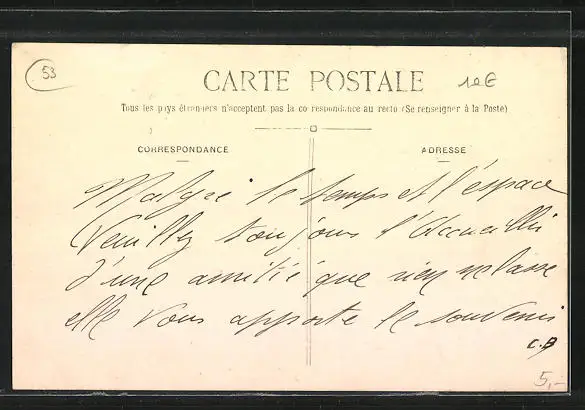 53
CARTE POSTALE
10€
Tous les pays étrangers n'acceptent pas la correspondance au recto (Se renseigner à la Poste)
CORRESPONDANCE
ADRESSE
Malgré le temps et l'espace
Veuillez toujours l'Accueillir
d'une amitié que rien ne lasse
elle vous apporte le souvenir
C.B
5,-